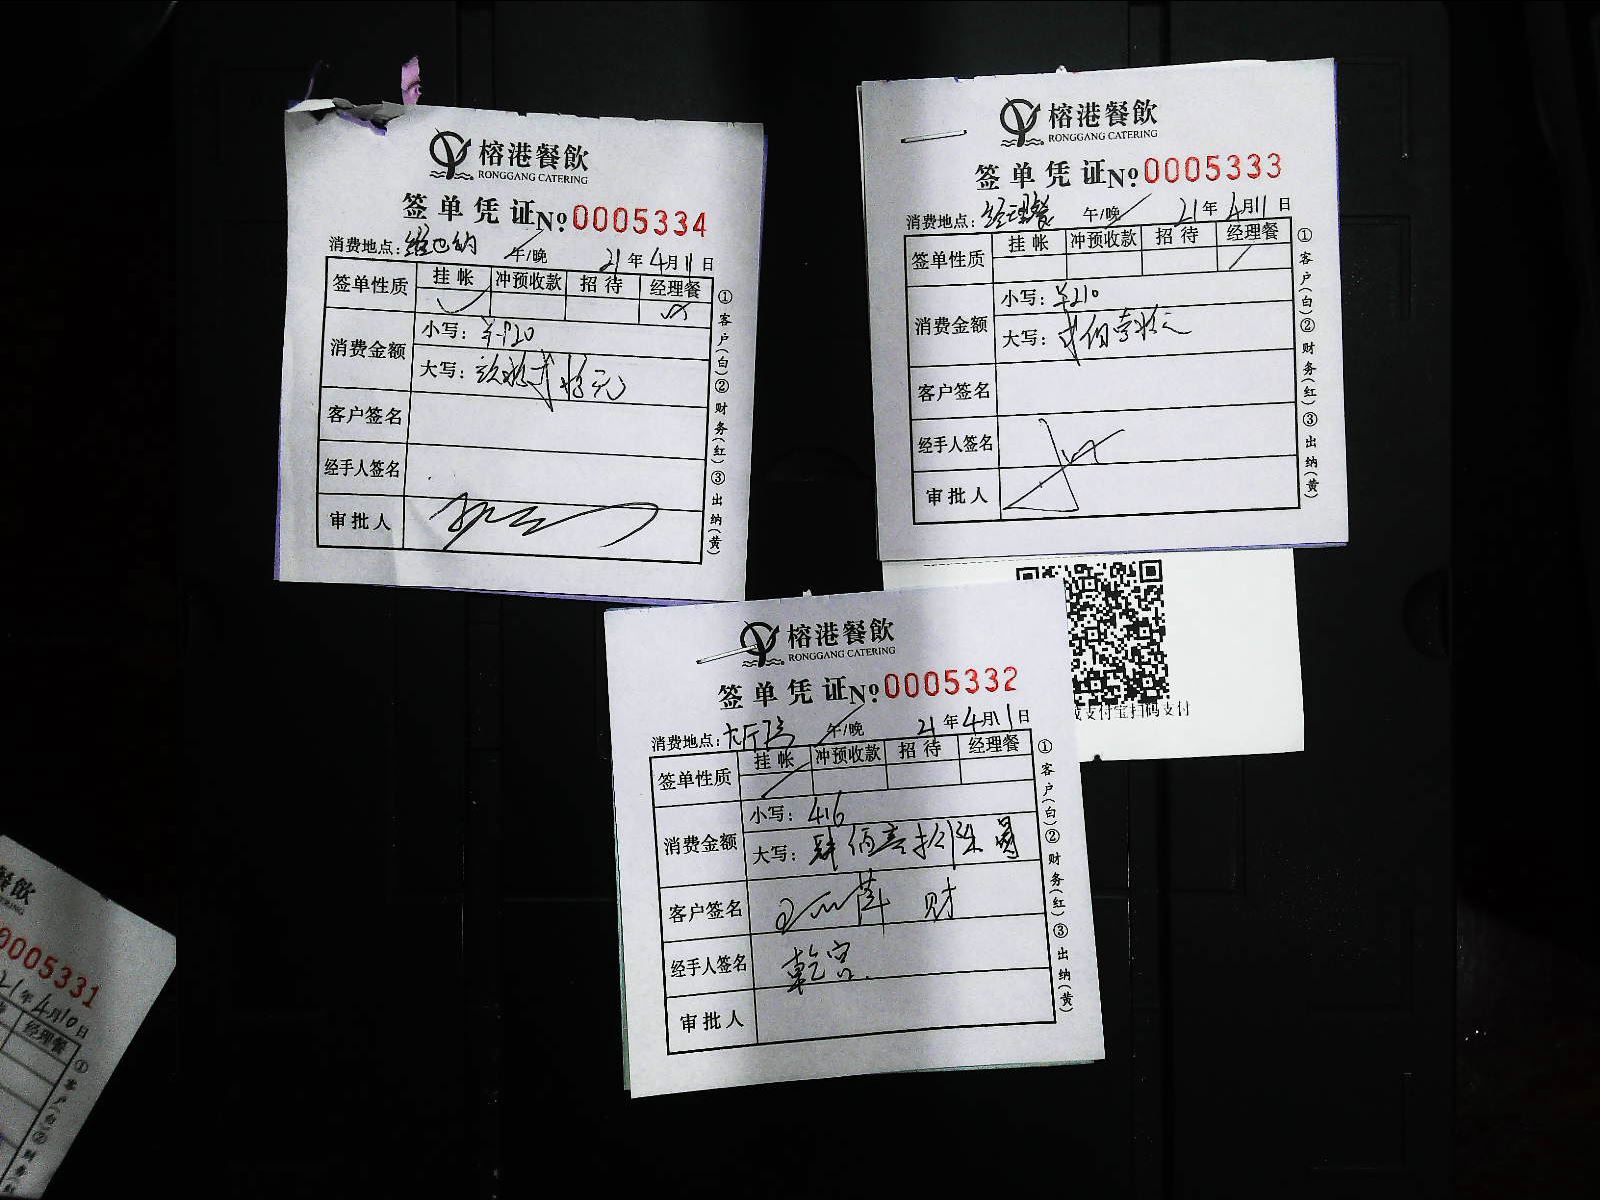 榕港餐飲
RONGGANG CATERING
签单凭证№0005334
消费地点：维也纳 午/晚 21年4月11日
签单性质 挂帐 冲预收款 招待 经理餐
消费金额
小写：
大写：
客户签名
经手人签名
审批人
①客户(白)②财务(红)③出纳(黄)
榕港餐飲
RONGGANG CATERING
签单凭证№0005333
消费地点：经理餐 午/晚 21年4月11日
签单性质 挂帐 冲预收款 招待 经理餐
消费金额
小写：¥210
大写：贰佰壹拾元
客户签名
经手人签名
审批人
①客户(白)②财务(红)③出纳(黄)
支付宝扫码支付
榕港餐飲
RONGGANG CATERING
签单凭证№0005332
消费地点： 午/晚 21年4月11日
签单性质 挂帐 冲预收款 招待 经理餐
消费金额
小写：416
大写：肆佰壹拾陆
客户签名 财
经手人签名 乾宫
审批人
①客户(白)②财务(红)③出纳(黄)
餐飲
0005331
21年4月10日
经理餐
①客户(白)②财务